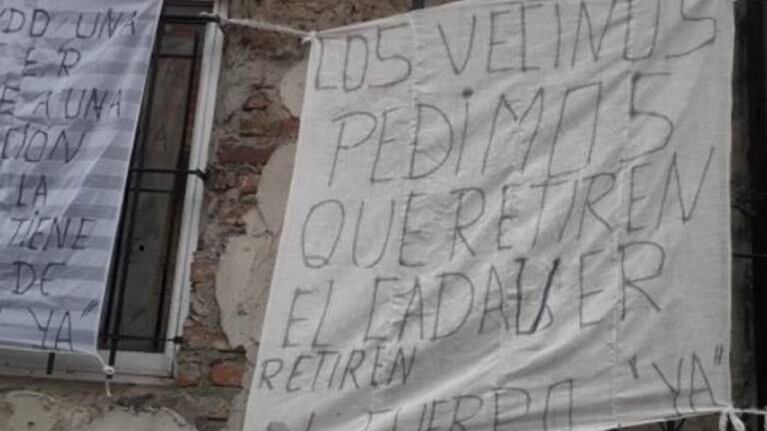 UNA
ER
A UNA
CION
LA
TIENE
DE
YA"
LOS VECINOS
PEDIMOS
QUE RETIREN
EL CADAVER
RETIREN
CUERPO "YA"